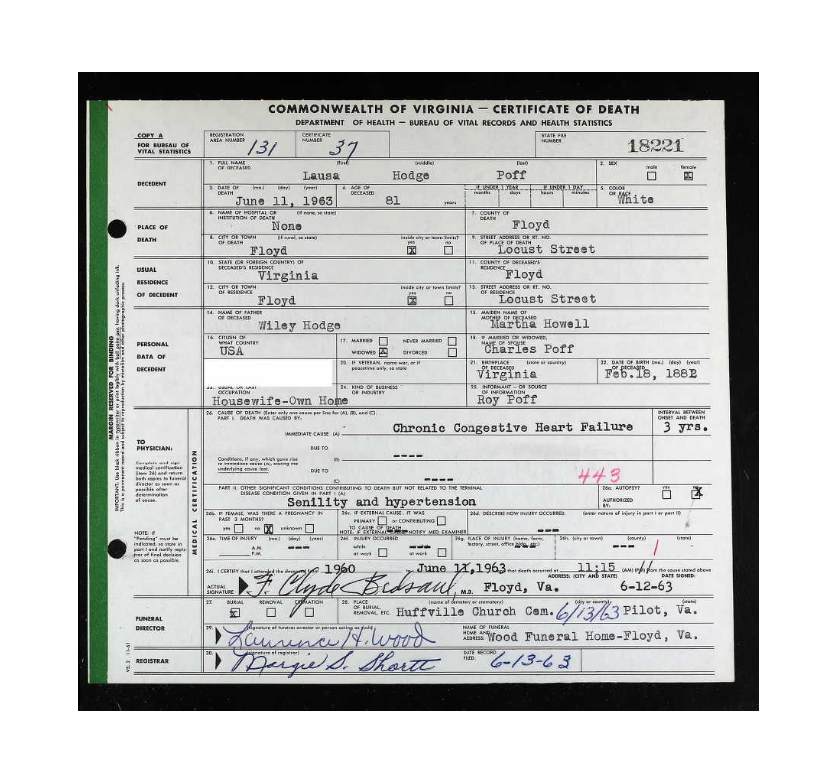 COMMONWEALTH OF VIRGINIA — CERTIFICATE OF DEATH
DEPARTMENT OF HEALTH — BUREAU OF VITAL RECORDS AND HEALTH STATISTICS
COPY A
FOR BUREAU OF VITAL STATISTICS
REGISTRATION AREA NUMBER 131
CERTIFICATE NUMBER 37
STATE FILE NUMBER 18221
DECEDENT
1. FULL NAME OF DECEASED (first) (middle) (last)
Lausa Hodge Poff
2. SEX male female X
3. DATE OF DEATH (mo.) (day) (year)
June 11, 1963
4. AGE OF DECEASED 81 years
IF UNDER 1 YEAR months days
IF UNDER 1 DAY hours minutes
5. COLOR OR RACE White
PLACE OF DEATH
6. NAME OF HOSPITAL OR INSTITUTION OF DEATH (if none, so state)
None
7. COUNTY OF DEATH
Floyd
8. CITY OR TOWN OF DEATH (if rural, so state)
Floyd
inside city or town limits? yes X no
9. STREET ADDRESS OR RT. NO. OF PLACE OF DEATH
Locust Street
USUAL RESIDENCE OF DECEDENT
10. STATE (OR FOREIGN COUNTRY) OF DECEASED'S RESIDENCE
Virginia
11. COUNTY OF DECEASED'S RESIDENCE
Floyd
12. CITY OR TOWN OF RESIDENCE
Floyd
inside city or town limits? yes X no
13. STREET ADDRESS OR RT. NO. OF RESIDENCE
Locust Street
PERSONAL DATA OF DECEDENT
14. NAME OF FATHER OF DECEASED
Wiley Hodge
15. MAIDEN NAME OF MOTHER OF DECEASED
Martha Howell
16. CITIZEN OF WHAT COUNTRY
USA
17. MARRIED NEVER MARRIED
WIDOWED X DIVORCED
18. IF MARRIED OR WIDOWED, NAME OF SPOUSE
Charles Poff
20. IF VETERAN, name war, or if peacetime only, so state
21. BIRTHPLACE OF DECEASED (state or country)
Virginia
22. DATE OF BIRTH (mo.) (day) (year) OF DECEASED
Feb.18, 1882
OCCUPATION
Housewife-Own Home
24. KIND OF BUSINESS OR INDUSTRY
25. INFORMANT - OR SOURCE OF INFORMATION
Roy Poff
MARGIN RESERVED FOR BINDING
TO PHYSICIAN:
Complete and sign medical certification (item 26) and return both copies to funeral director as soon as possible after determination of cause.
MEDICAL CERTIFICATION
26. CAUSE OF DEATH (Enter only one cause per line for (A), (B), and (C).
PART I. DEATH WAS CAUSED BY:
IMMEDIATE CAUSE (A) Chronic Congestive Heart Failure
INTERVAL BETWEEN ONSET AND DEATH
3 yrs.
Conditions, if any, which gave rise to immediate cause (A), stating the underlying cause last.
DUE TO (B) ----
DUE TO (C) ----
443
PART II. OTHER SIGNIFICANT CONDITIONS CONTRIBUTING TO DEATH BUT NOT RELATED TO THE TERMINAL DISEASE CONDITION GIVEN IN PART I (A)
Senility and hypertension
26a. AUTOPSY? yes no X
AUTHORIZED BY:
26b. IF FEMALE, WAS THERE A PREGNANCY IN PAST 3 MONTHS?
yes no X unknown
26c. IF EXTERNAL CAUSE, IT WAS
PRIMARY or CONTRIBUTING
TO CAUSE OF DEATH
26d. DESCRIBE HOW INJURY OCCURRED (enter nature of injury in part I or part II)
---
NOTE: If "Pending" must be indicated, so state in part I and notify registrar of final decision as soon as possible.
26e. TIME OF INJURY (mo.) (day) (year)
A.M. P.M. ---
26f. INJURY OCCURRED
while at work at work
26g. PLACE OF INJURY (home, farm, factory, street, office bldg., etc.)
---
26h. (city or town) (county) (state)
---
26i. I CERTIFY that I attended the deceased from 1960 to June 11,1963 that death occurred at 11:15 AM from the cause stated above
ACTUAL SIGNATURE F. Clyde Bedsaul M.D.
ADDRESS: (CITY AND STATE) Floyd, Va.
DATE SIGNED: 6-12-63
FUNERAL DIRECTOR
27. BURIAL X REMOVAL CREMATION
28. PLACE OF BURIAL, REMOVAL, ETC. (name of cemetery or crematory) (city or county) (state)
Huffville Church Cem. 6/13/63 Pilot, Va.
29. (signature of funeral director or person acting as such)
Laurence H. Wood
NAME OF FUNERAL HOME AND ADDRESS: Wood Funeral Home-Floyd, Va.
REGISTRAR
30. (signature of registrar)
Margie S. Shortt
DATE RECORD FILED: 6-13-63